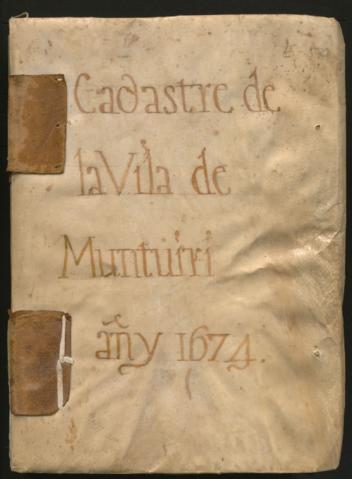 Cadastre de
la Vila de
Muntuiri
añy 1674.